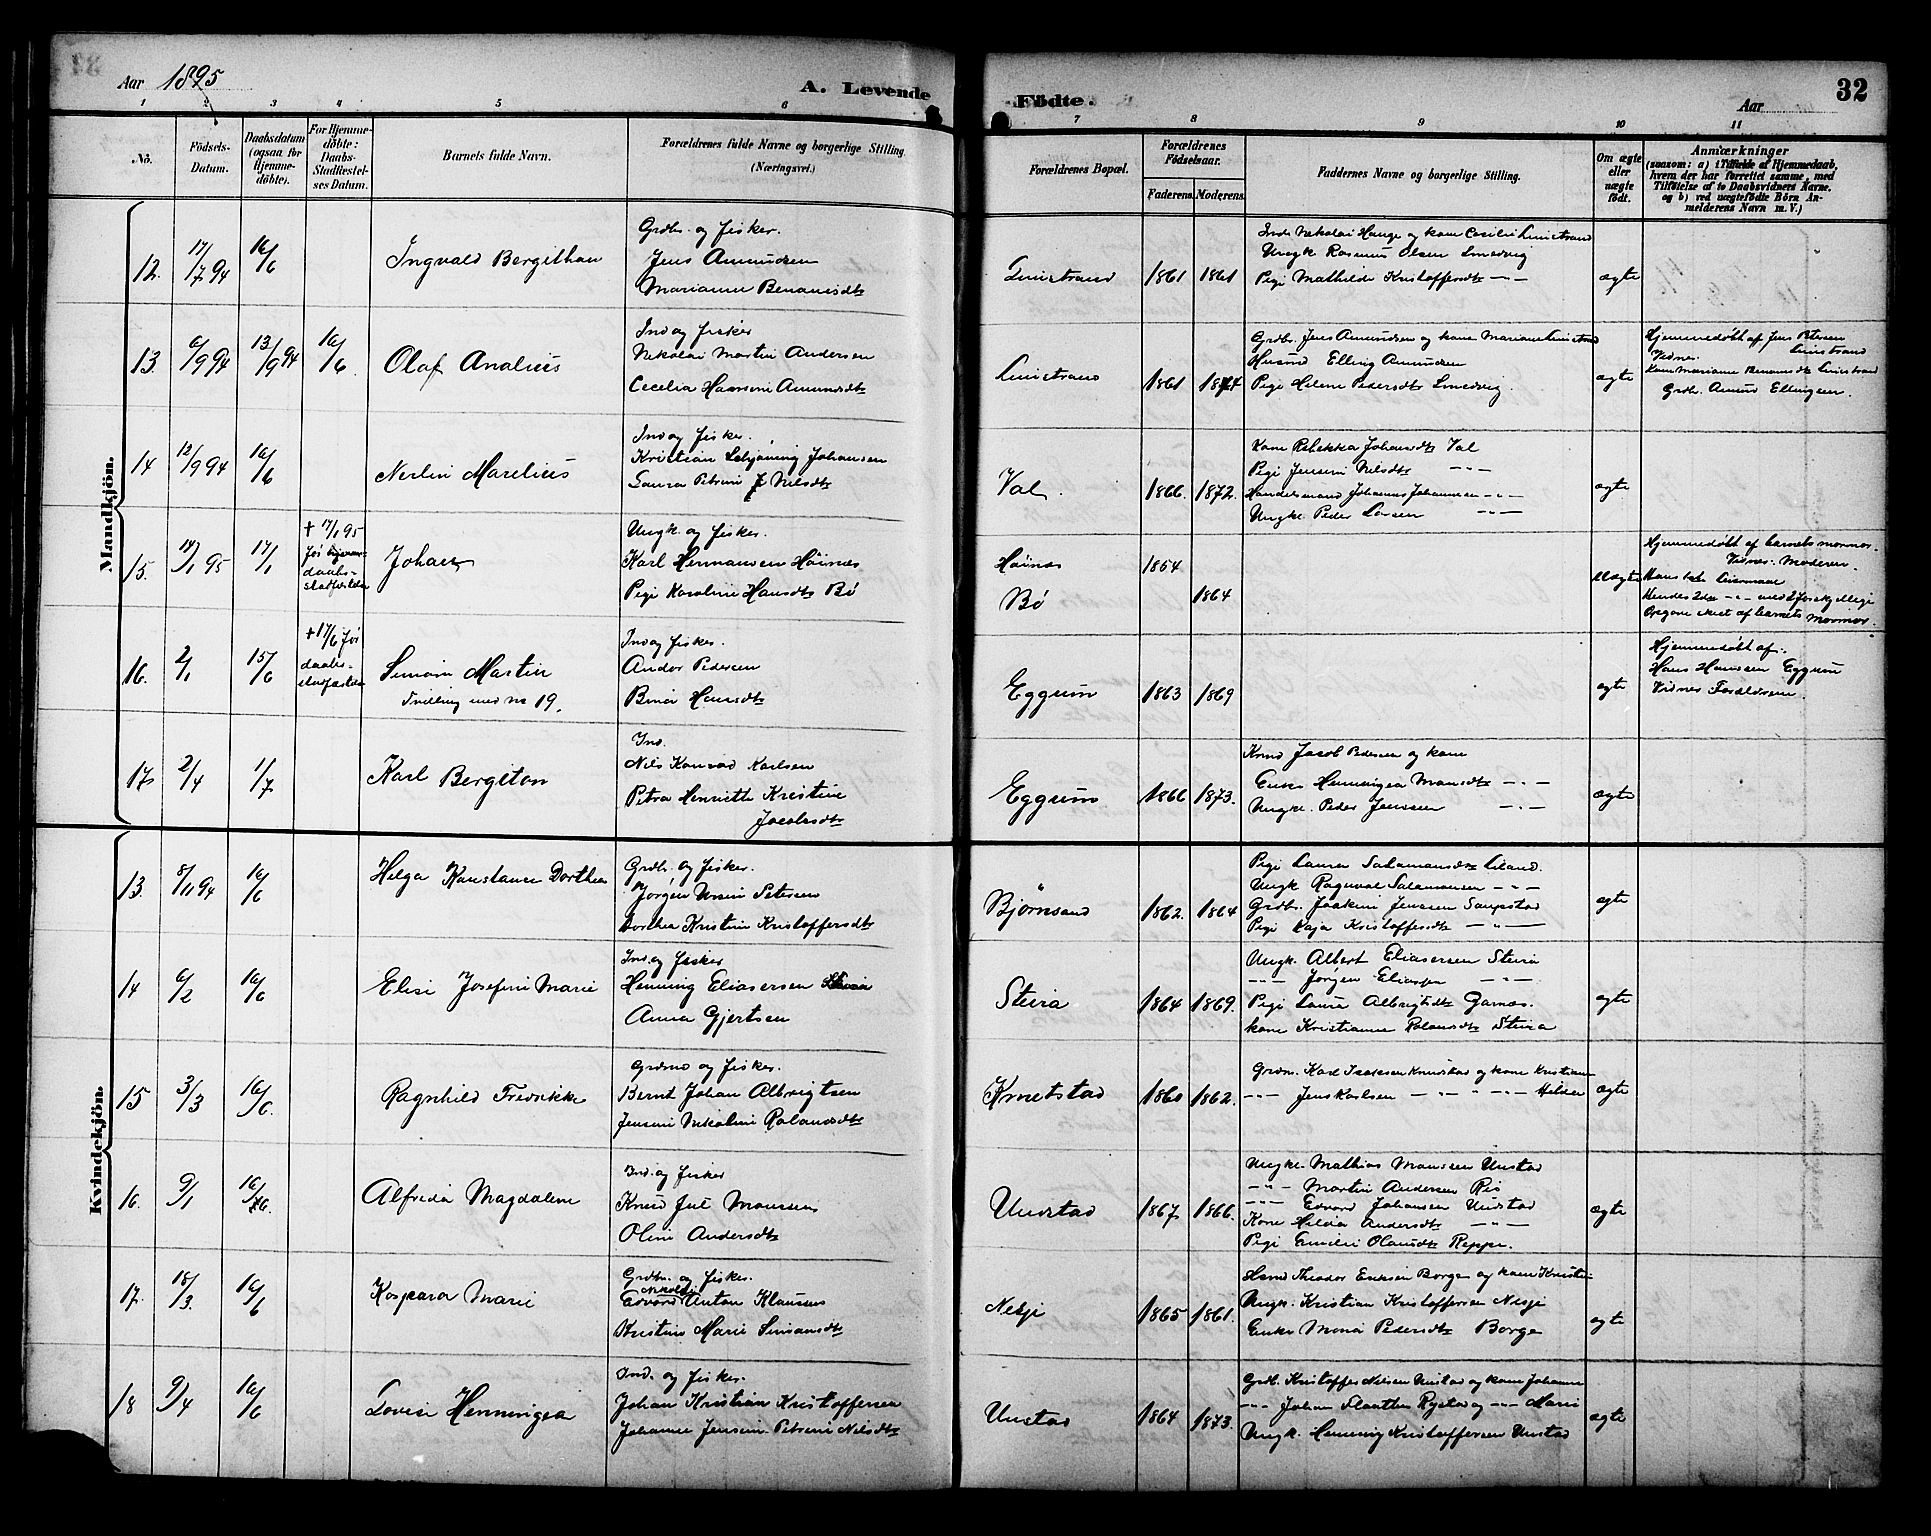 Aar 1895
A. Levende
Födte.
Aar
32
1 2 3 4 5 6 7 8 9 10 11
No.
Födsels-Datum.
Daabsdatum (ogsaa for Hjemmedöbte).
For Hjemmedöbte: Daabs-Stadfestelses Datum.
Barnets fulde Navn.
Forældrenes fulde Navne og borgerlige Stilling
(Næringsvei.)
Forældrenes Bopæl.
Forældrenes Födselsaar.
Faderens Moderens
Faddernes Navne og borgerlige Stilling.
Om ægte eller uægte födt.
Anmærkninger
(saasom: a) i Tilfælde af Hjemmedaab, hvem der har forrettet samme, med Tilföielse af to Daabsvidners Navne. og b) ved uægtefödte Börn Anmelderens Navn m. V.)
Mandkjön.
12. 17/7 94 16/6 Ingvald Bergithan
Grdbr. og fisker.
Jens Amundsen
Marianne Benamsdtr
Linistrand 1861 1861
Inds Nikolai Hauge og kone Cecilie Linistrand
Ungk Rasmus Olsen Smedvig
Pige Mathilde Kristoffersdtr - " -
ægte
13. 6/9 94 13/9 94 16/6 Olaf Analius
Ind og fisker
Nikolai Martin Andersen
Cecelia Hansine Amundsdtr
Linistrand 1861 1874
Grdbr. Jens Amundsen og kone Mariane Linistrand
Husmd Elling Amundsen
Pige Helene Pedersdtr Smedvig.
ægte
Hjemmedøbt af Jens Petersen
Linistrand
Vidner
Kone Mariane Benamsdtr Linistrand
Grdb. Amund Ellingsen.
14 12/9 94 16/6 Nerlin Marelius
Ind og fisker.
Kristian Schjøning Johansen
Laura Petrine J Nilsdtr
Val. 1866. 1872.
Kone Rebekka Johansdtr Val
Pige Jensine Nilsdtr - " -
Handelsmand Johannes Johannesen - " -
Ungk. Peder Larsen - " -
ægte
15. 14/1 95 17/1
+ 17/1 95
før hjemmedaabs-
stadfæstelse
Johan
Ungk og fisker.
Karl Hermansen Høinæs
Pige Karoline Hansdtr Bø
Høinæs 1854
Bø 1864
Uægte
Hjemmedøbt af barnets mormor.
Vidner: Moderen.
Hans 1ste Leiermaal
Hendes 2det - " - med 2 forskjellige
Opgave skeet af barnets Mormor.
16. 2/1 15/6
+ 17/6 før
daabs-
stadfæstelse
Simon Martin
Tvilling med No 19.
Ind og fisker.
Andor Pedersen
Bina Hansdtr
Eggum 1863 1869
ægte
Hjemmedøbt af.
Hans Hanssen Eggum
Vidner Forældrene.
17. 2/4 1/7 Karl Bergiton
Ind.
Nils Konrad Karlsen
Petra Henriette Kristine
Jacobsdtr
Eggum 1866 1873.
Jacob Pedersen og kone
Enke Henningea Monsdtr - " -
Ungk. Peder Jenssen - " -
ægte
Kvindekjön.
13. 8/11 94 16/6 Helga Konstanse Dorthea
Grdbr. og fisker.
Jørgen Ursin Petersen
Dorthea Kristine Kristoffersdtr
Bjørnsand 1862. 1864
Pige Laura Salamonsdtr Liland.
Ungk Ragnval Salamonsen - " -
Grdbr. Joakim Jenssen Sanpstad
Pige Kaja Kristoffersdtr - " -
ægte
14 6/2 16/6 Elise Josefine Marie
Ind. og fisker
Henning Eliasersen Steira
Anna Gjertsen
Steira 1864 1869.
Ungk. Albert Eliasersen Steira
- " - Jørgen Eliassen - " -
Pige Laura Albrigtsdtr Garnæs.
kone Kristianne Rolandsdtr Steira
ægte
15 3/3 16/6. Ragnhild Fredrikke
Grdmd og fisker.
Bernt Johan Albrigtsen
Jensine Nikoline Rolandsdtr
Knutstad 1860 1862.
Grdm. Karl Isaksen Knutstad og kone Kristianne
- " - Jens Karlsen - " - " - " - Melder
ægte
16. 9/1 16/6. Alfreda Magdalene
Ind. og fisker
Knud Jul Monssen
Oline Andersdtr
Unstad 1867. 1866.
Ungk. Mathias Monssen Unstad
- " - Martin Andersen Ris
- " - Edvard Johansen Unstad
Kone Hilda Andersdtr - " -
Pige Emilie Olausdtr Reppe.
ægte
17. 18/3. 16/6 Kaspara Marie
Grdbr. og fisker.
Edvard Anton Klaussen
Kristine Marie Simonsdtr
Nesje 1865 1861.
Theodor Eriksen Borge og kone Kristine
Ungk. Kristian Kristoffersen Nesje
Enke Mona Pedersdtr Borge
ægte
18 9/4 16/6 Lovise Henningea
Ind. og fisker.
Johan Kristian Kristoffersen
Johanne Jensine Petrine Nilsdtr
Unstad 1864 1873.
Grdb. Kristoffer Nilsen Unstad og kone Johanne
- " - Johan Slaatten Rystad og - " - Marie
Ungk. Henning Kristoffersen Unstad
ægte